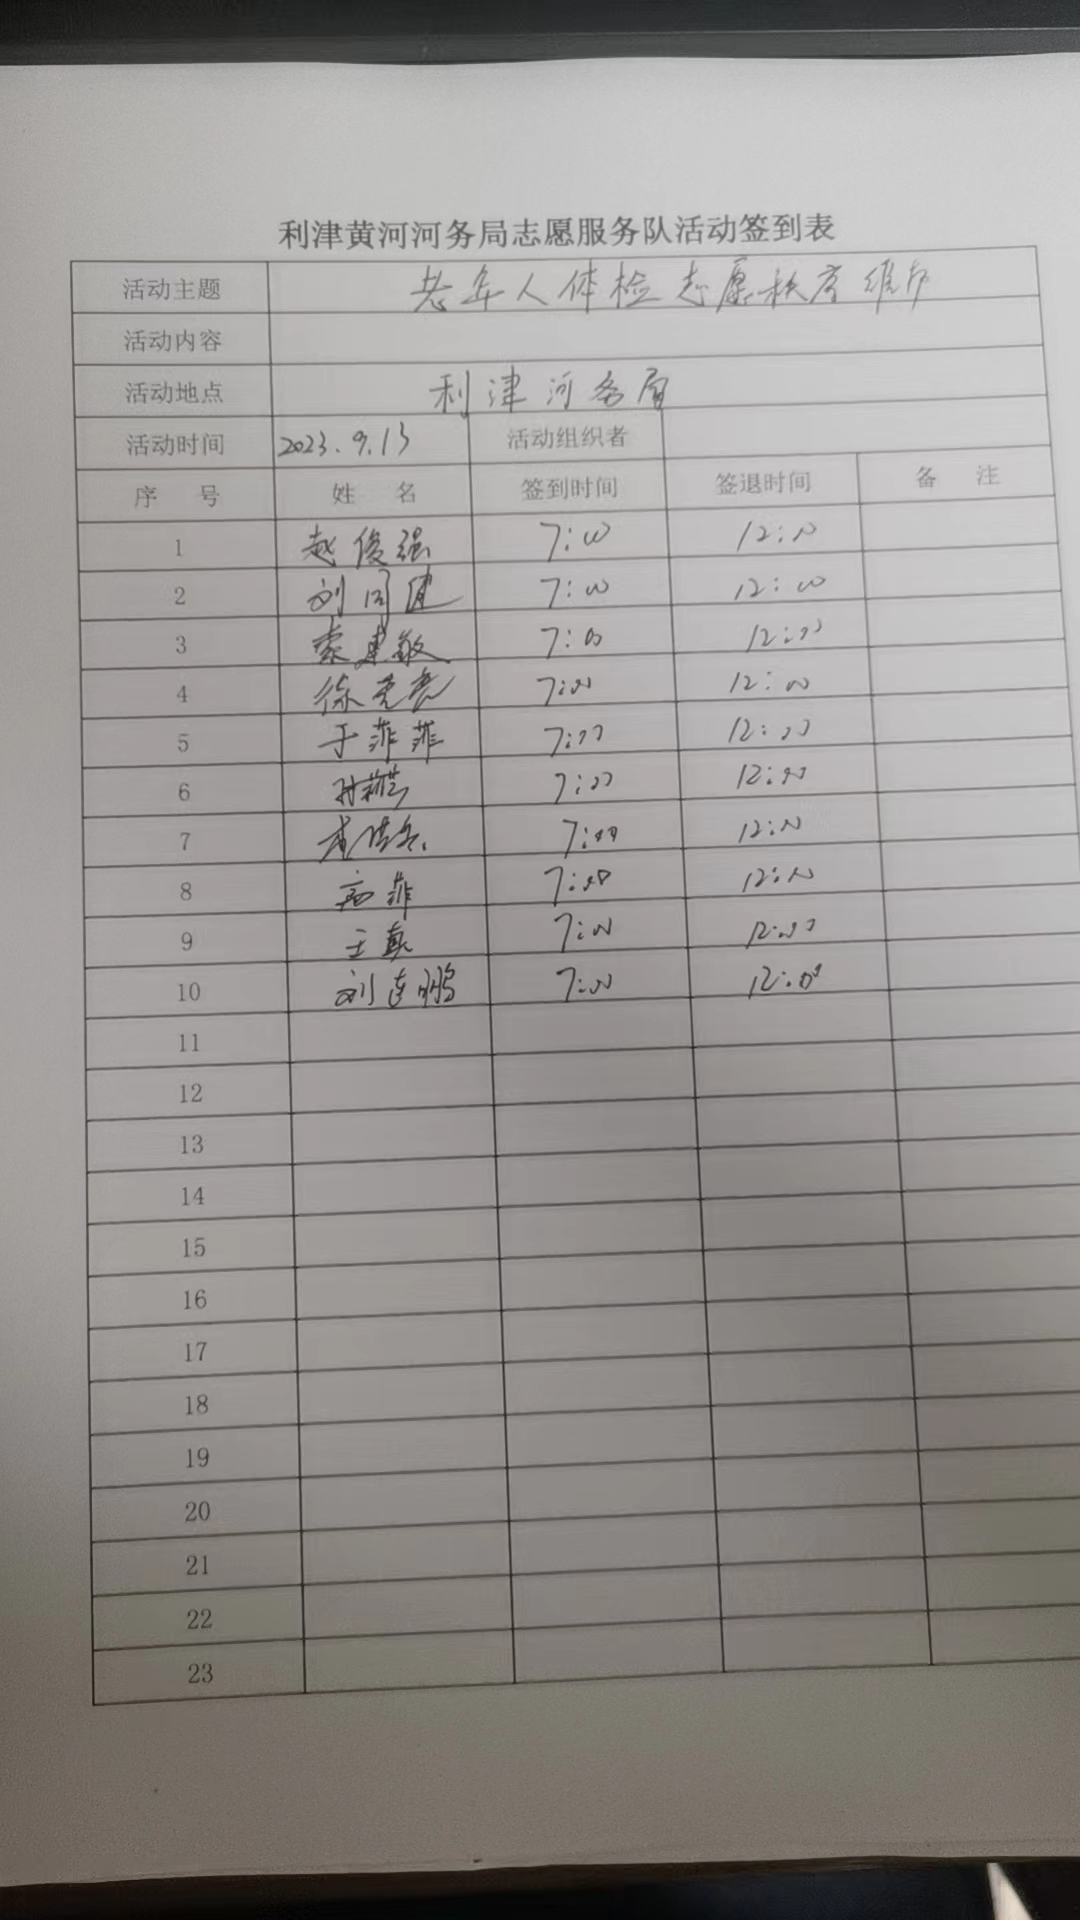 利津黄河河务局志愿服务队活动签到表
活动主题 老年人体检志愿秩序维护
活动内容
活动地点 利津河务局
活动时间 2023.9.13 活动组织者
序 号 姓 名 签到时间 签退时间 备 注
1 赵俊强 7:00 12:00
2 刘同健 7:00 12:00
3 建敏 7:00 12:00
4 徐亮亮 7:00 12:00
5 于菲菲 7:00 12:00
6 7:00 12:00
7 7:00 12:00
8 高菲 7:00 12:00
9 王真 7:00 12:00
10 刘连鹏 7:00 12:00
11
12
13
14
15
16
17
18
19
20
21
22
23